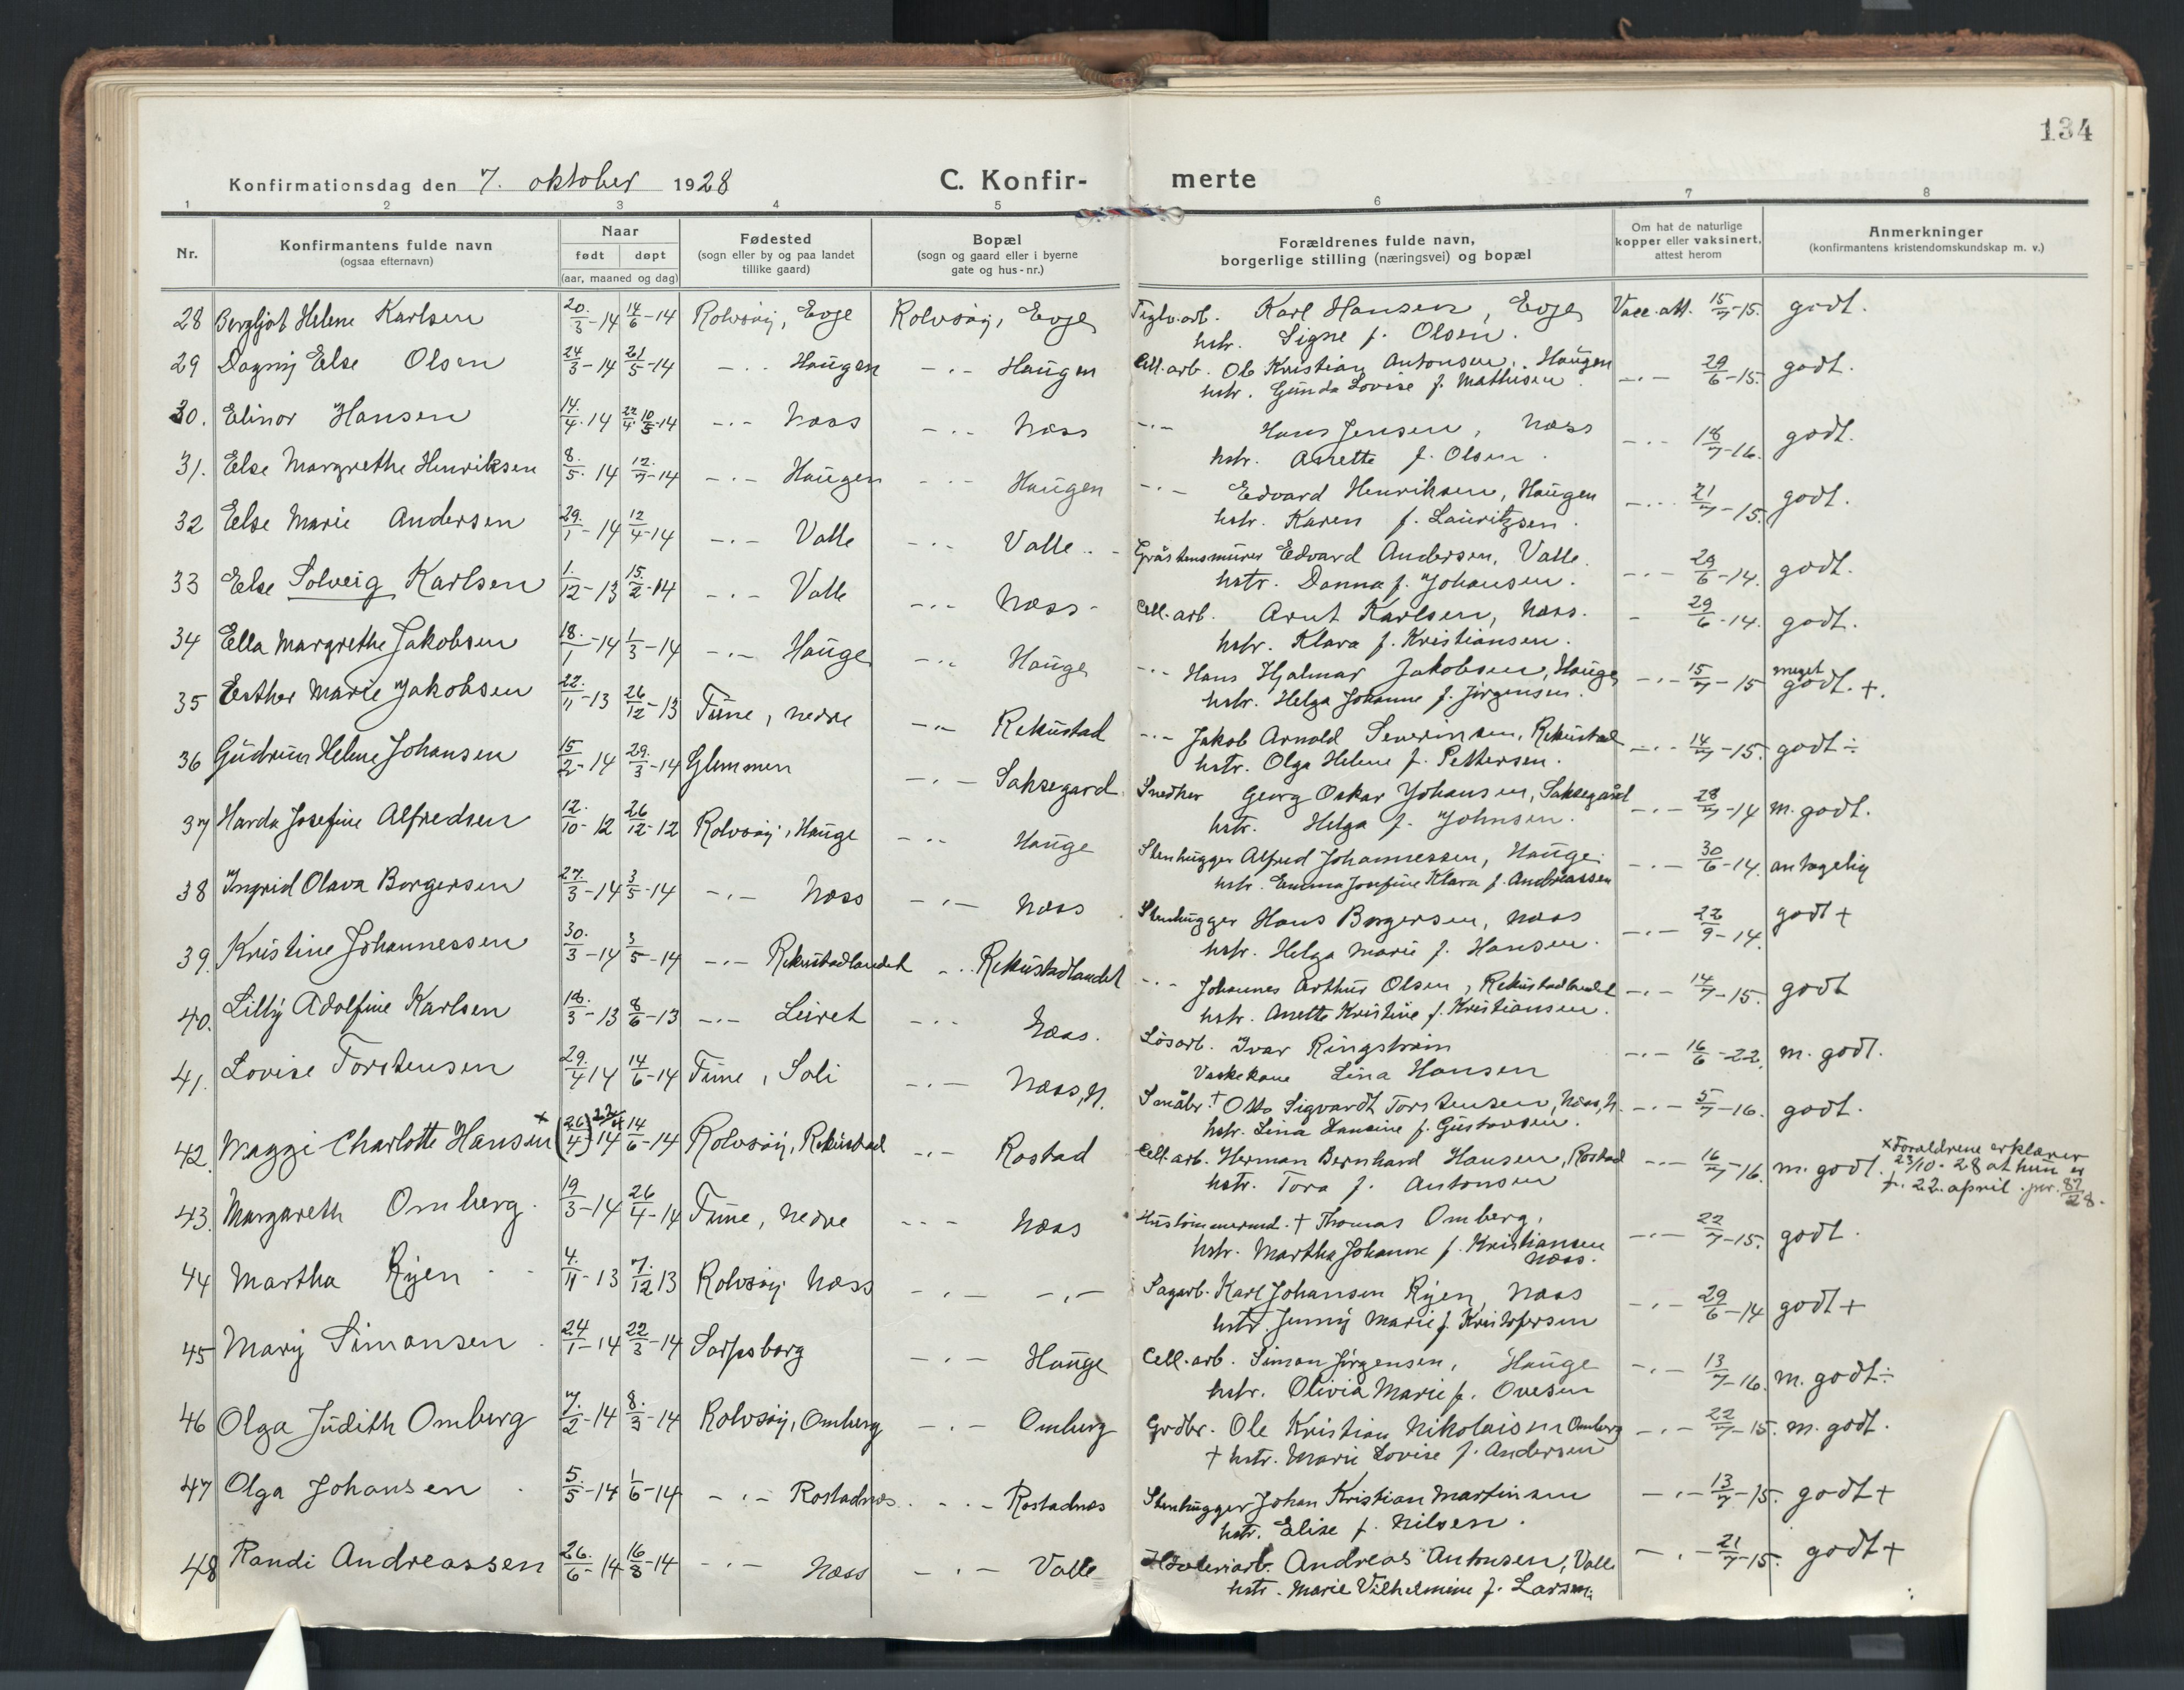 134
Konfirmationsdag den 7. oktober 1928 C. Konfir- merte
1 2 3 4 5 6 7 8
Nr. Konfirmantens fulde navn (ogsaa efternavn) Naar født døpt (aar, maaned og dag) Fødested (sogn eller by og paa landet tillike gaard) Bopæl (sogn og gaard eller i byerne gate og hus-nr.) Forældrenes fulde navn, borgerlige stilling (næringsvei) og bopæl Om hat de naturlige kopper eller vaksinert, attest herom Anmerkninger (konfirmantens kristendomskundskap m. v.)
28 Bergljot Helene Karlsen 20./3-14 14/6-14 Rolvsøy, Evje Rolvsøy, Evje Teglv.arb. Karl Hansen, Evje Vacc.att. 15/7-15. godt.
hstr. Signe f. Olsen.
29 Dagny Else Olsen 24/3-14 21/5-14 -"- Haugen -"- Haugen Cell.arb. Ole Kristian Antonsen, Haugen -"- 29/6-15. godt.
hstr. Gunda Lovise f. Mathisen.
30. Elinor Hansen 14./4-14 10/5-14 -"- Næss -"- Næss -"- Hans Jensen, Næss -"- 18/7-16. godt.
hstr. Anette f. Olsen.
31. Else Margrethe Henriksen 8./5-14 12./7-14 -"- Haugen -"- Haugen -"- Edvard Henriksen, Haugen -"- 21/7-15. godt.
hstr. Karen f. Lauritzsen.
32 Else Marie Andersen 29./1-14 12/4-14 -"- Valle -"- Valle Gråstensmurer Edvard Andersen, Valle. -"- 29/6-14. godt.
hstr. Danna f. Johansen.
33 Else Solveig Karlsen 1./12-13 15./2-14 -"- Valle -"- Næss Cell.arb. Arnt Karlsen, Næss. - 29/6-14. godt.
hstr. Klara f. Kristiansen.
34 Ella Margrethe Jakobsen 18./1-14 1/3-14 -"- Hauge -"- Hauge -"- Hans Hjalmar Jakobsen, Hauge -"- 15/7-15 meget godt. +.
hstr. Helga Johanne f. Jørgensen.
35 Esther Marie Jakobsen 22./11-13 26/12-13 Tune, nedre -"- Rekustad -"- Jakob Arnold Severinsen, Rekustad -"- 14/7-15. godt ÷
hstr. Olga Helene f. Pettersen.
36 Gudrun Helene Johansen 15/2-14 29./3-14 Glemmen -"- Saksegard. Snedker Georg Oskar Johansen, Saksegård -"- 28/7-14 m. godt.
hstr. Helga f. Johnsen.
37 Harda Josefine Alfredsen 12./10-12 26/12-12 Rolvsøy, Hauge -"- Hauge Stenhugger Alfred Johannessen, Hauge. -"- 30/6-14. antagelig
hstr. Emma Josefine Klara f. Andreassen
38 Ingrid Olava Borgersen 27./3-14 3/5-14 -"- Næss -"- Næss Stenhugger Hans Borgersen, Næss -"- 22/9-14. godt +
hstr. Helga Marie f. Hansen.
39. Kristine Johannessen 30./3-14 3/5-14 -"- Rekustadlandet -"- Rekustadlandet -"- Johannes Arthur Olsen, Rekustadlandet -"- 14/7-15. godt
hstr. Anette Kristine f. Kristiansen.
40. Lilly Adolfine Karlsen 18./3-13 8/6-13 -"- Leiret -"- Næss. Løsarb. Ivar Ringstrøm -"- 16/6-22. m. godt.
Vaskekone Lina Hansen
41. Lovise Torstensen 29./4 14 14/6-14 Tune, Soli -"- Næss, N. Småbr. † Otto Sigvardt Torstensen, Næss, N. -"- 5/7-16. godt.
hstr. Lina Hansine f. Gustavsen.
42. Maggi Charlotte Hansen x (26/4) 22/4 14 14/6-14 Rolvsøy, Rekustad -"- Rostad Cell.arb. Herman Bernhard Hansen, Rostad -"- 16/7-16. m. godt.
hstr. Tora f. Antonsen
x Foreldrene erklærer
23/10-28 at hun er
f. 22. april. jnr. 87/28.
43. Margareth Omberg. 19/3-14 26/4-14 Tune, nedre -"- Næss Hustømmermd. † Thomas Omberg, -"- 22/7-15. godt.
hstr. Martha Johanne f. Kristiansen
Næss.
44 Martha Ryen 4./11-13 7./12 13 Rolvsøy Næss -"- -"- Sagarb. Karl Johansen Ryen, Næss -"- 29/6-14 godt +
hstr. Jenny Marie f. Kristofersen
45 Mary Simonsen 24/1-14 22/3-14 Sarpsborg -"- Hauge Cell.arb. Simon Jørgensen, Hauge -"- 13/7-16. m. godt ÷
hstr. Olivia Marie f. Ovesen
46 Olga Judith Omberg 7./2-14 8./3-14 Rolvsøy, Omberg -"- Omberg Grdbr. Ole Kristian Nikolaisen Omberg -"- 22/7-15. m. godt.
† hstr. Marie Lovise f. Andersen
47 Olga Johansen 5./5-14 1/6-14 -"- Rostadnes. -"- Rostadnes Stenhugger Johan Kristian Martinsen -"- 13/7-15. godt +
hstr. Elise f. Nilsen.
48 Randi Andreassen 26./6-14 16/8-14 -"- Næss -"- Valle Andreas Antonsen, Valle -"- 21/7-15. godt +
hstr. Marie Vilhelmine f. Larsen.